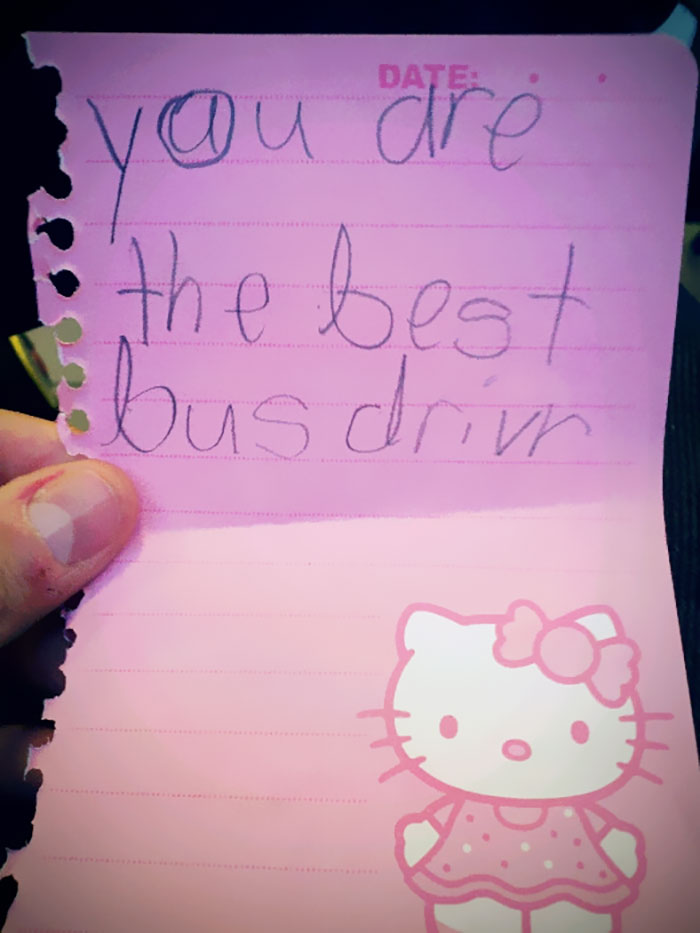 DATE:
you are
the best
bus drivr